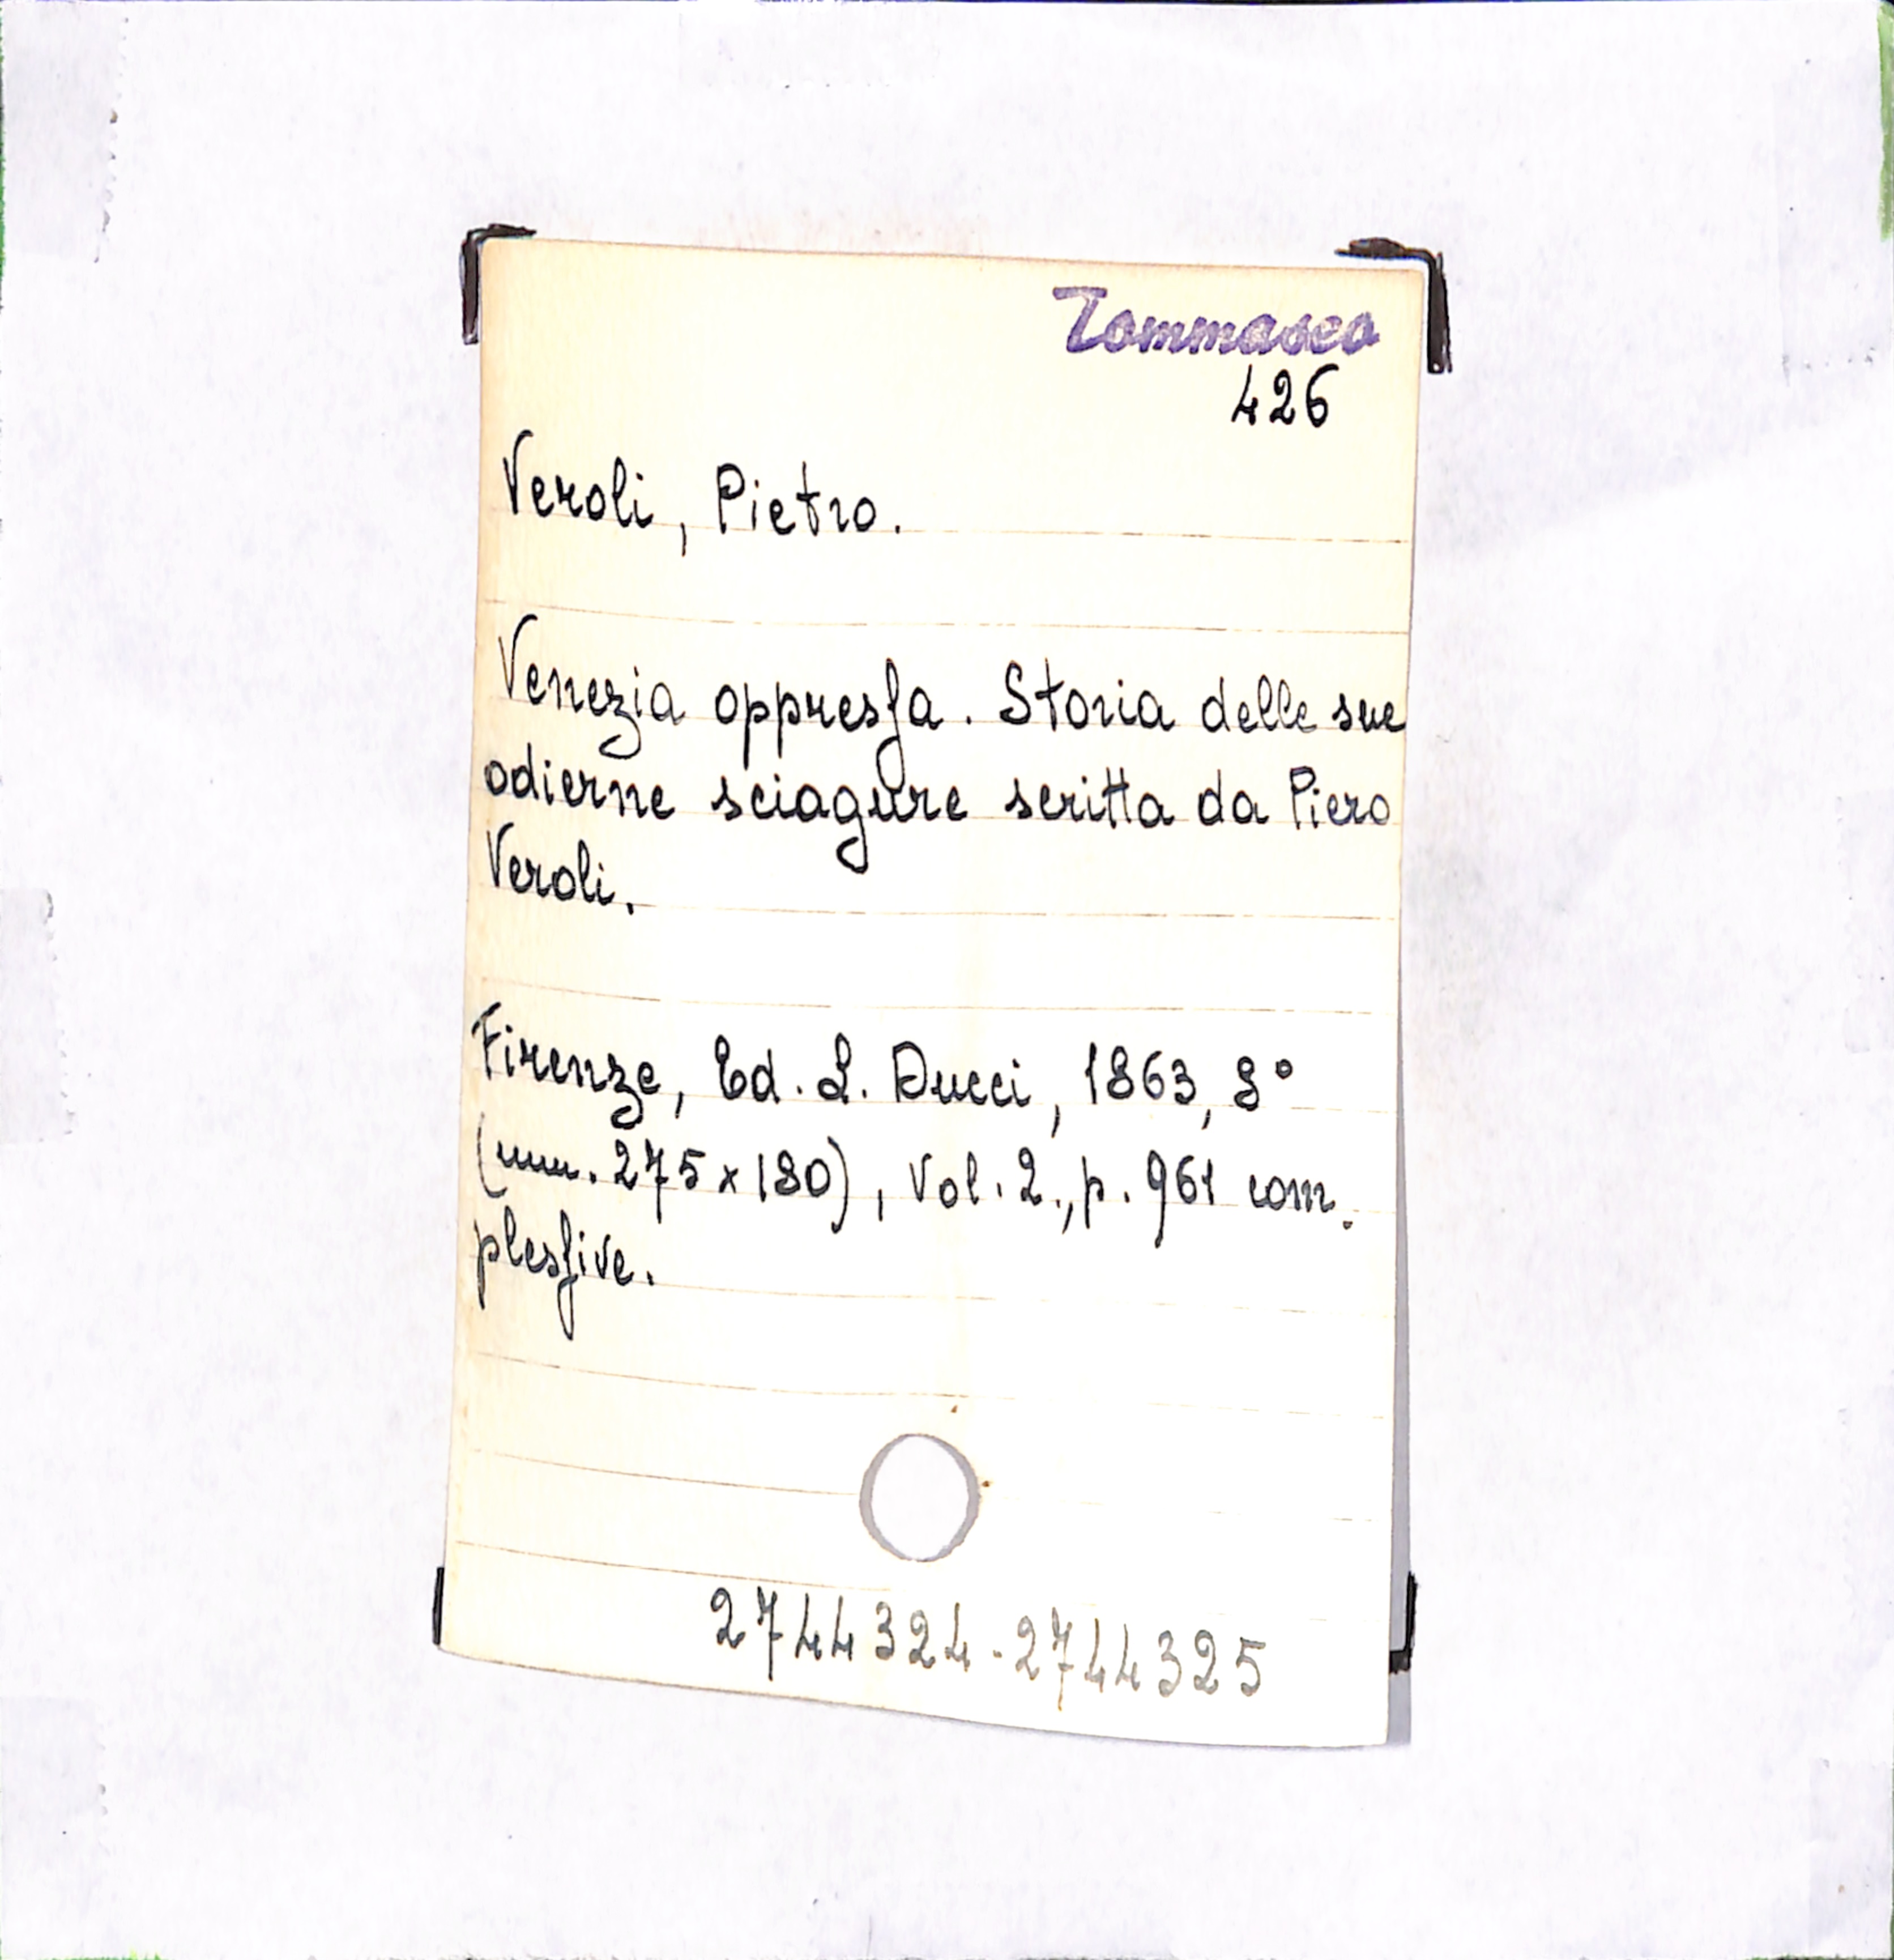 Tommaseo
426
Veroli, Pietro.
Venezia oppressa. Storia delle sue
odierne sciagure scritta da Piero
Veroli.
Firenze, Ed. L. Ducci, 1863, 8°
(mm. 275 x 180), Vol. 2., p. 961 com.
plessive.
2744324-2744325